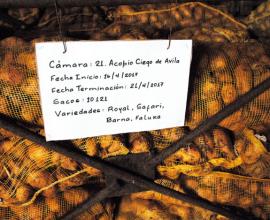 Cámara: 21. Acopio Ciego de Avila
Fecha Inicio: 14/4/2017
Fecha Terminación: 21/4/2017
Sacos: 10121
Variedades- Royal, Safari,
Barna, Faluka